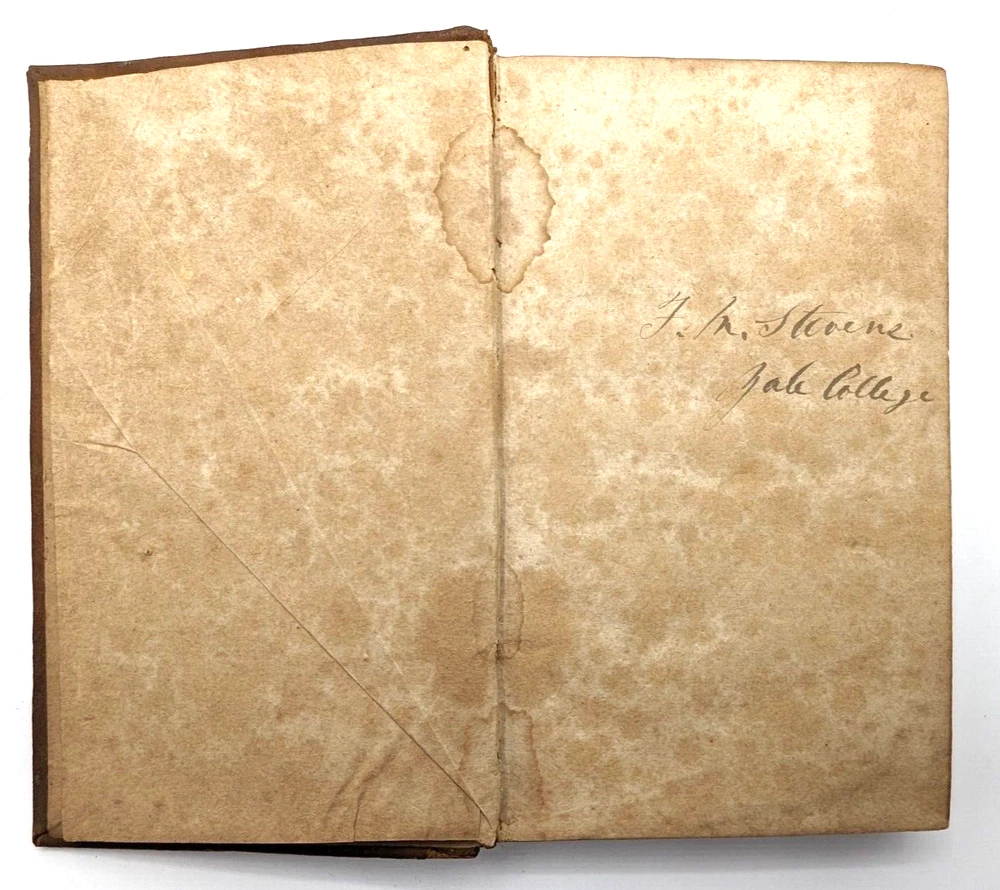 F. M. Stevens
Yale College